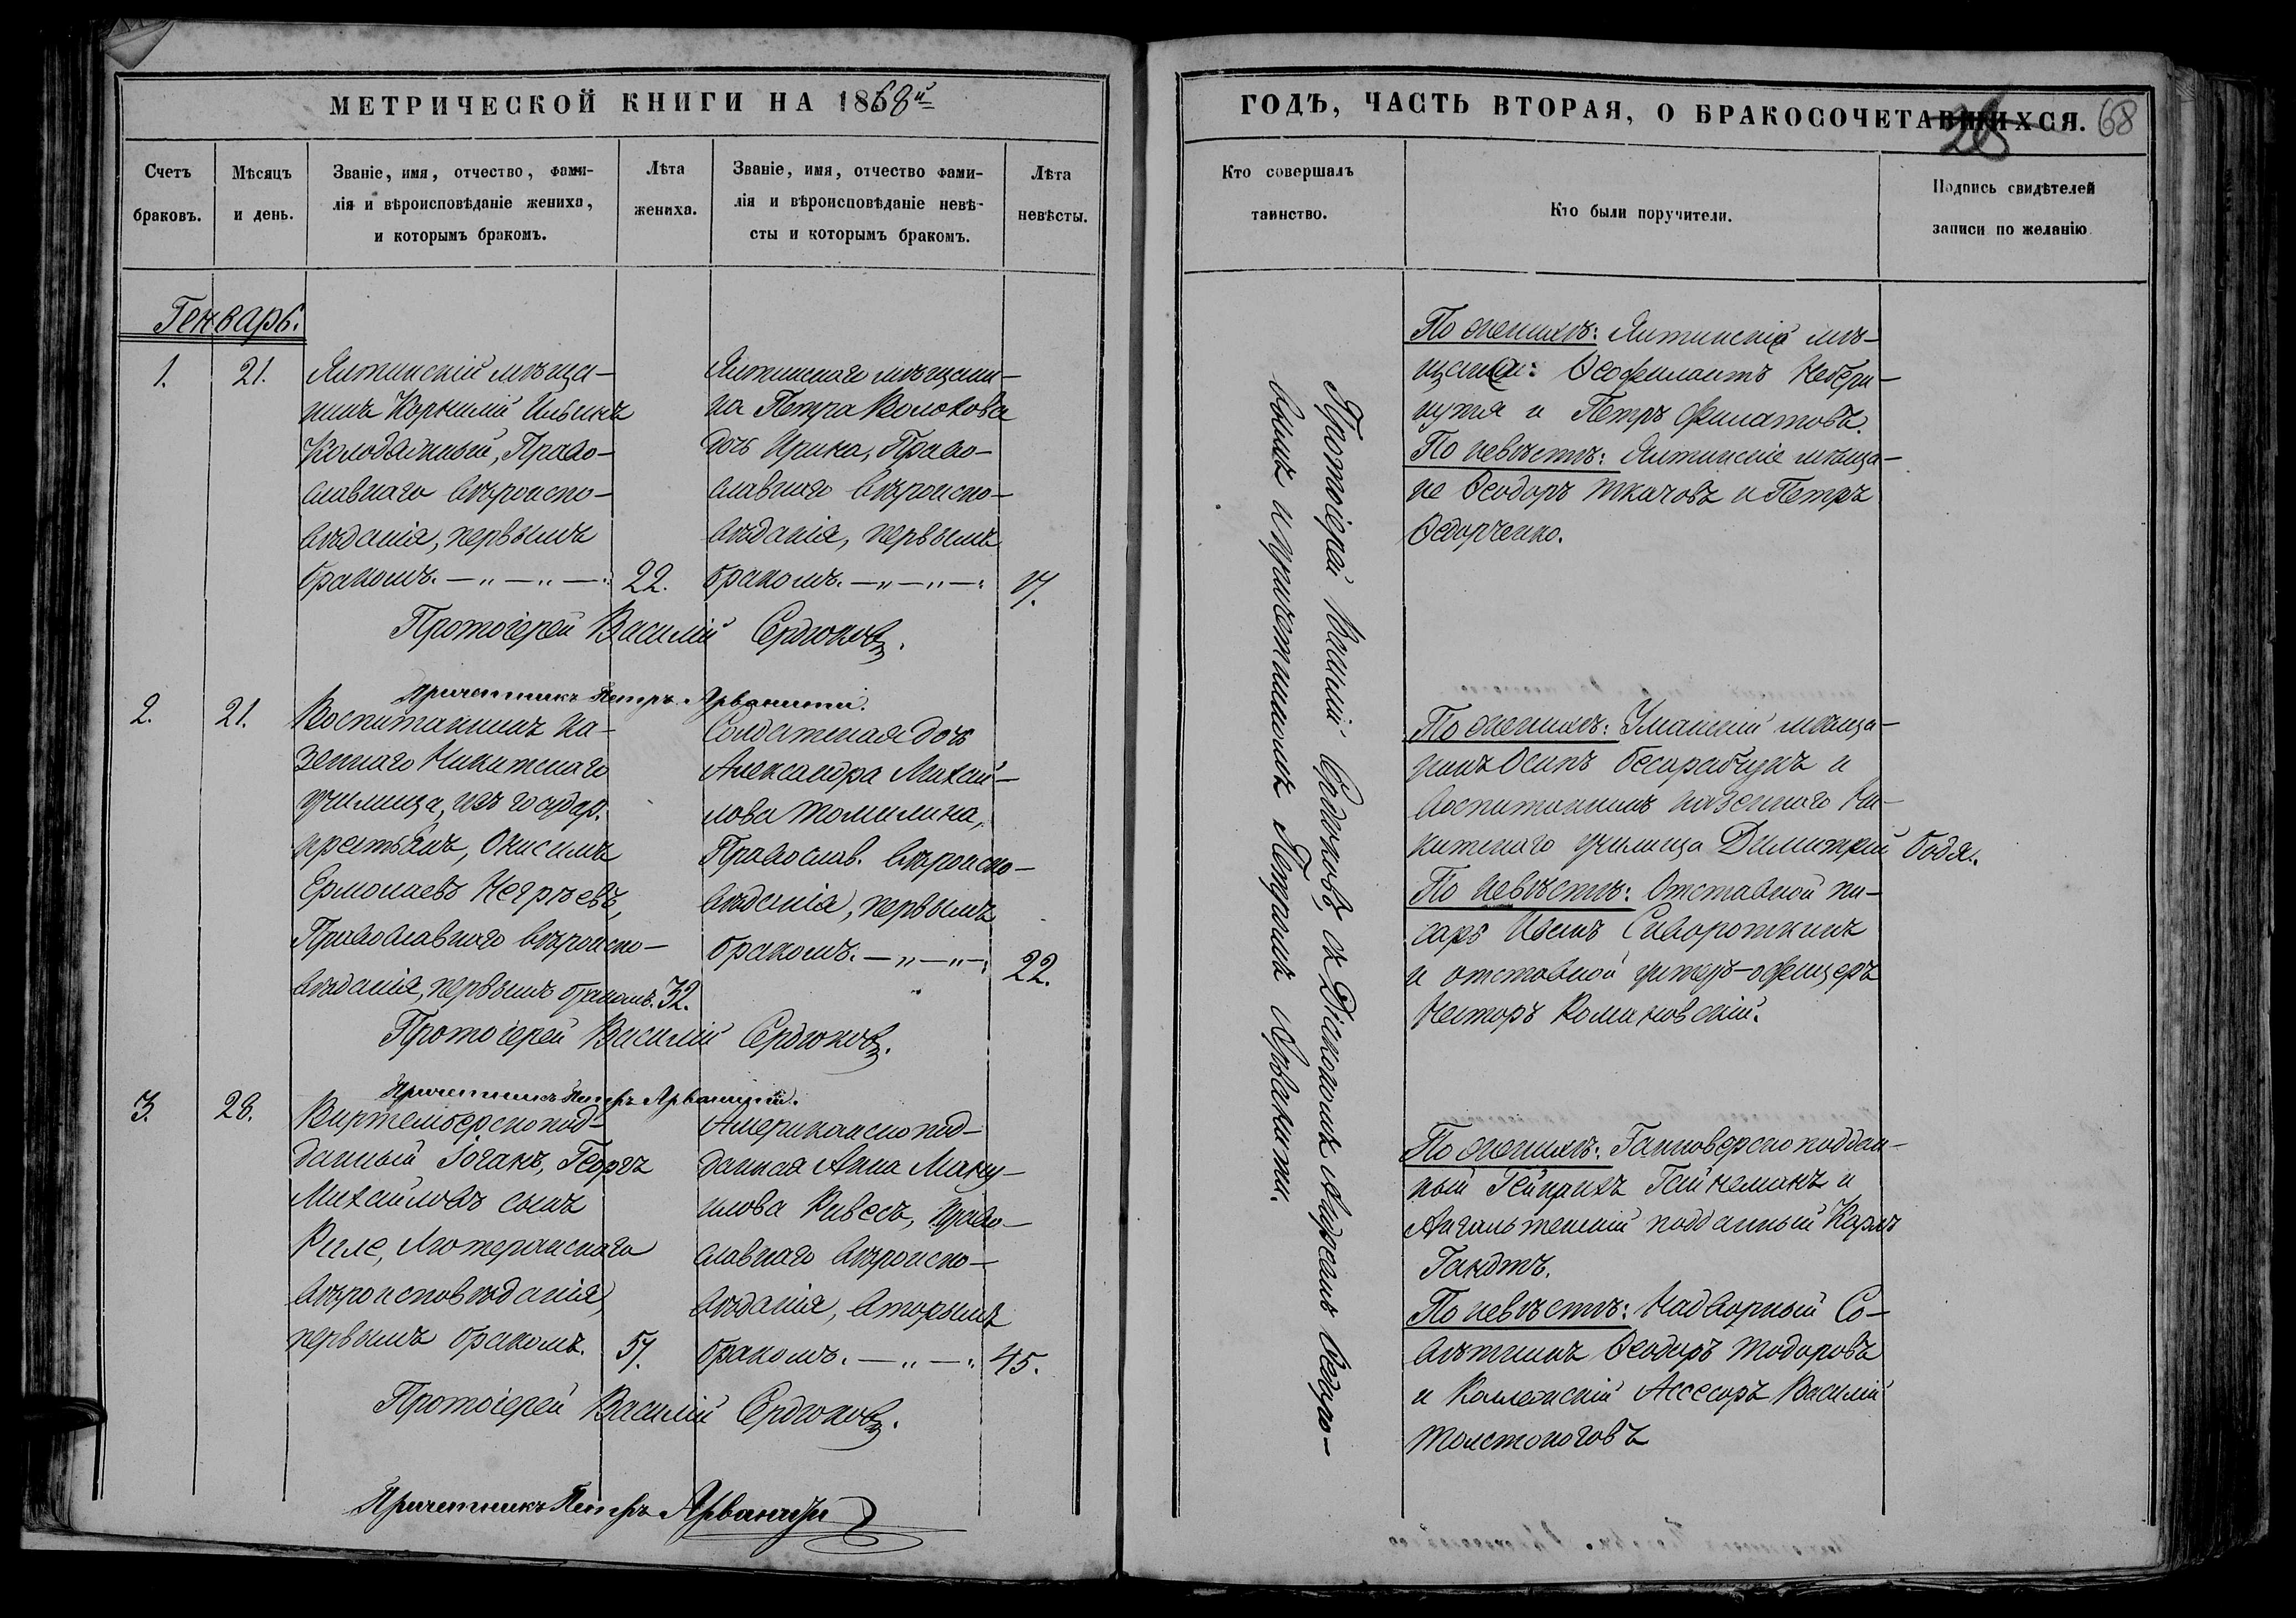 МЕТРИЧЕСКОЙ КНИГИ НА 1868й
Счетъ браковъ.
Мѣсяцъ и день.
Званіе, имя, отчество, фами-
лія и вѣроисповѣданіе жениха,
и которымъ бракомъ.
Лѣта жениха.
Званіе, имя, отчество фами-
лія и вѣроисповѣданіе невѣ-
сты и которымъ бракомъ.
Лѣта невѣсты.
Генварь.
1.
21.
Ялтинскій мѣща-
нинъ Корнилій Ильинъ
Колодяжный, Право-
славнаго вѣроиспо-
вѣданія, первымъ
бракомъ. — „ — „ —
22.
Ялтинскаго мѣщани-
на Петра Волокова
дочь Ирина, Право-
славнаго вѣроиспо-
вѣданія, первымъ
бракомъ. — „ — „ —
17.
Протоіерей Василій Сердюковъ.
Причетникъ Петръ Арванити.
2.
21.
Воспитанникъ ка-
зеннаго Никитскаго
училища, изъ государ.
крестьянъ, Онисимъ
Ермолаевъ Негрѣевъ,
Православнаго вѣроиспо-
вѣданія, первымъ бракомъ.
32.
Солдатская дочь
Александра Михай-
лова Томилина,
Православ. вѣроиспо-
вѣданія, первымъ
бракомъ. — „ — „ —
22.
Протоіерей Василій Сердюковъ.
Причетникъ Петръ Арванити.
3.
28.
Виртембергско под-
данный Іоганъ, Георгъ
Михайловъ сынъ
Риле, Лютеранскаго
вѣроисповѣданія,
первымъ бракомъ.
57.
Американско под-
данная Анна Маку-
илова Ривесъ, Право-
славнаго вѣроиспо-
вѣданія, вторымъ
бракомъ. — „ —
45.
Протоіерей Василій Сердюковъ.
Причетникъ Петръ Арванити
ГОДЪ, ЧАСТЬ ВТОРАЯ, О БРАКОСОЧЕТАВШИХСЯ.
68
Кто совершалъ
таинство.
Кто были поручители.
Подпись свидѣтелей
записи по желанію
Протоіерей Василій Сердюковъ съ Діакономъ Андреемъ Ѳедоро-
вымъ и причетникомъ Петромъ Арванити.
По женихѣ: Ялтинскіе мѣ-
щане: Ѳеофилактъ Небери-
кутя и Петръ Филатовъ.
По невѣстѣ: Ялтинскіе мѣща-
не Ѳеодоръ Ткачовъ и Петръ
Ѳедорченко.
По женихѣ: Уманскій мѣща-
нинъ Осипъ Бесарабчукъ и
воспитанникъ казеннаго Ни-
китскаго училища Димитрій Бодя.
По невѣстѣ: Отставной пи-
сарь Иванъ Сивороткинъ
и отставной унтеръ-офицеръ
Несторъ Комановскій.
По женихѣ: Ганноверско поддан-
ный Гейнрихъ Гейнеманъ и
Ангальтскій подданный Карлъ
Гандтъ.
По невѣстѣ: Надворный Со-
вѣтникъ Ѳеодоръ Тодоровъ
и Коллежскій Ассесоръ Василій
Толстоноговъ